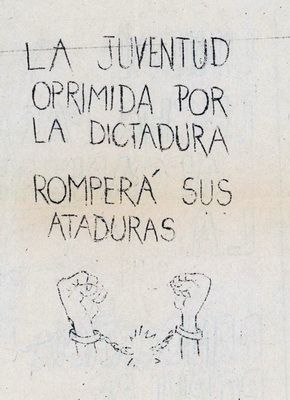 LA JUVENTUD
OPRIMIDA POR
LA DICTADURA
ROMPERÁ SUS
ATADURAS